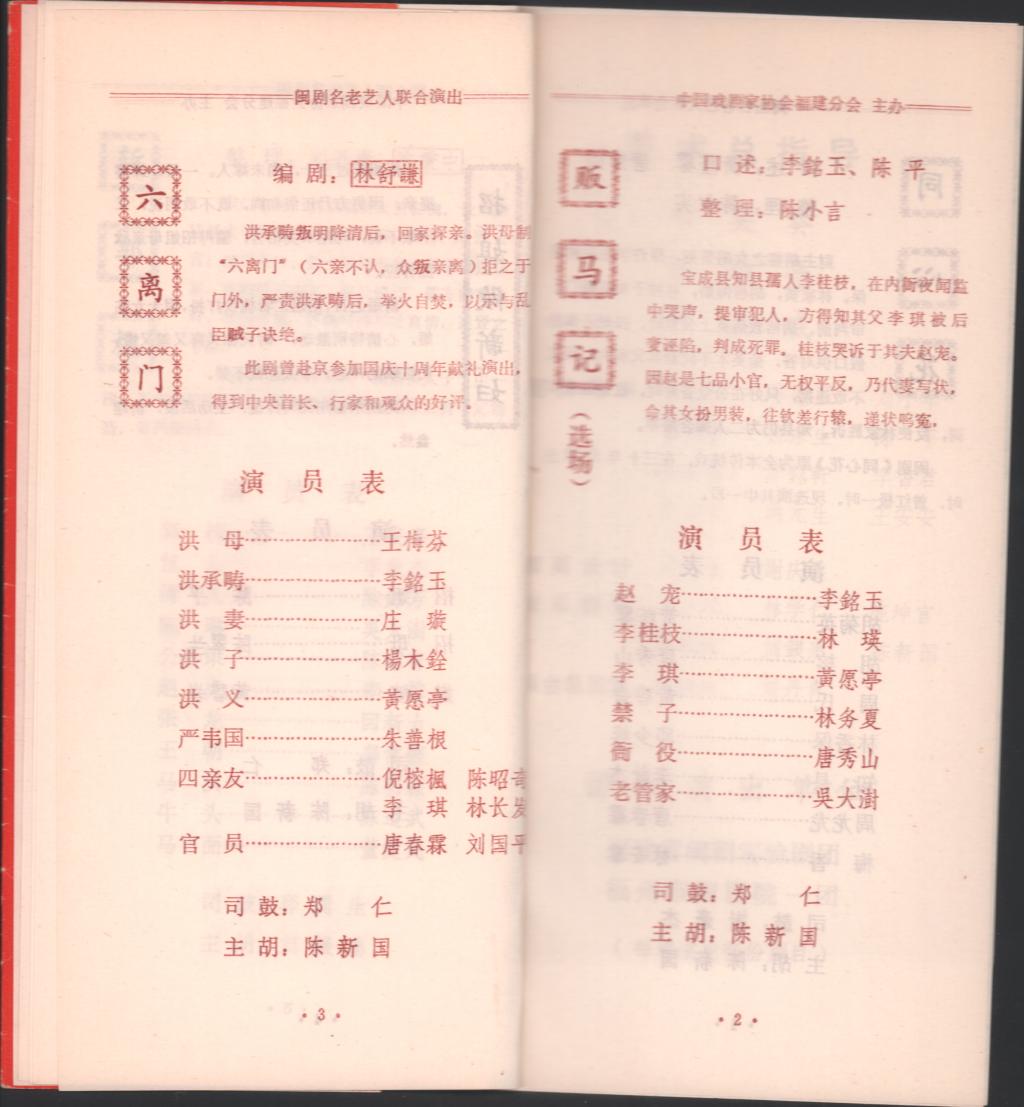 闽剧名老艺人联合演出
六离门
编剧：林舒謙
洪承畴叛明降清后，回家探亲。洪母制
“六离门”（六亲不认，众叛亲离）拒之于
门外，严责洪承畴后，举火自焚，以示与乱
臣贼子诀绝。
此剧曾赴京参加国庆十周年献礼演出，
得到中央首长、行家和观众的好评。
演员表
洪母…………………王梅芬
洪承畴…………………李銘玉
洪妻…………………庄璇
洪子…………………楊木銓
洪义…………………黄愿亭
严韦国…………………朱善根
四亲友…………………倪榕楓 陈昭奇
李琪 林长发
官员…………………唐春霖 刘国平
司鼓：郑仁
主胡：陈新国
·3·
中国戏剧家协会福建分会 主办
贩马记（选场）
口述：李銘玉、陈平
整理：陈小言
宝成县知县孺人李桂枝，在内衙夜闻监
中哭声，提审犯人，方得知其父李琪被后
妻诬陷，判成死罪。桂枝哭诉于其夫赵宠。
因赵是七品小官，无权平反，乃代妻写状，
命其女扮男装，往钦差行辕，递状鸣冤，
演员表
赵宠…………………李銘玉
李桂枝…………………林瑛
李琪…………………黄愿亭
禁子…………………林务夏
衙役…………………唐秀山
老管家…………………吳大澍
司鼓：郑仁
主胡：陈新国
·2·